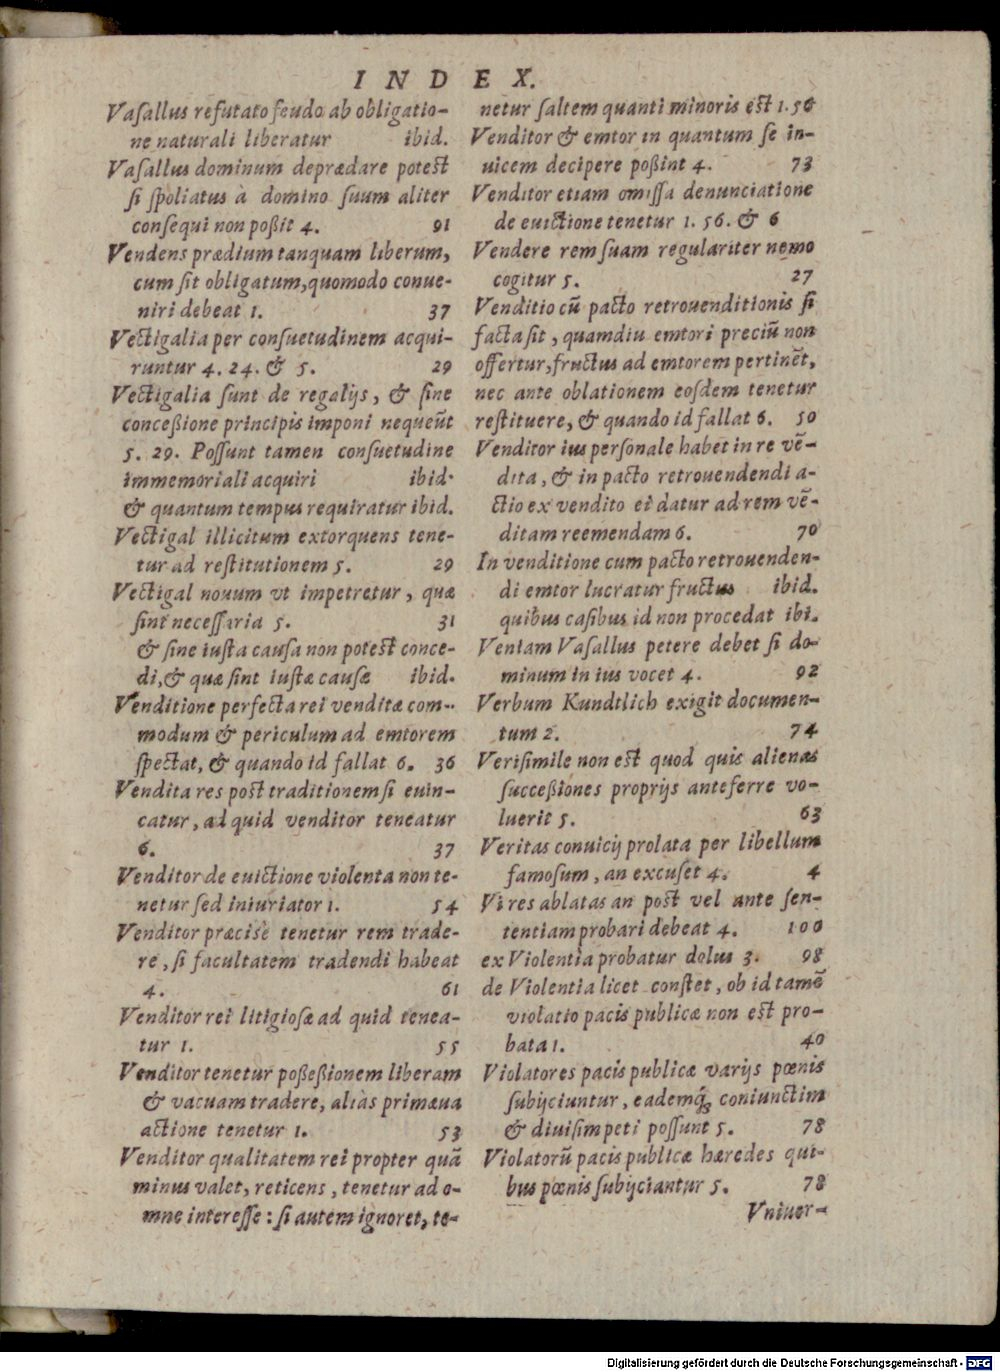 INDEX.
Vaſallus refutato feudo ab obligatio-
ne naturali liberatur ibid.
Vaſallus dominum deprædare potest
ſi ſpoliatus à domino ſuum aliter
conſequi non poßit 4. 91
Vendens prædium tanquam liberum,
cum ſit obligatum, quomodo conue-
niri debeat 1. 37
Vectigalia per conſuetudinem acqui-
runtur 4. 24. & 5. 29
Vectigalia ſunt de regalijs, & ſine
conceßione principis imponi nequeũt
5. 29. Poſſunt tamen conſuetudine
immemoriali acquiri ibid.
& quantum tempus requiratur ibid.
Vectigal illicitum extorquens tene-
tur ad reſtitutionem 5. 29
Vectigal nouum vt impetretur, quæ
ſint neceſſaria 5. 31
& ſine iuſta cauſa non potest conce-
di, & quæ ſint iuſtæ cauſæ ibid.
Venditione perfecta rei venditæ com-
modum & periculum ad emtorem
ſpectat, & quando id fallat 6. 36
Vendita res post traditionem ſi euin-
catur, ad quid venditor teneatur
6. 37
Venditor de euictione violenta non te-
netur ſed iniuriator 1. 54
Venditor præcisè tenetur rem trade-
re, ſi facultatem tradendi habeat
4. 61
Venditor rei litigioſæ ad quid tenea-
tur 1. 55
Venditor tenetur poßeßionem liberam
& vacuam tradere, alias primæua
actione tenetur 1. 53
Venditor qualitatem rei propter quã
minus valet, reticens, tenetur ad o-
mne intereſſe: ſi autem ignoret, te-
netur ſaltem quanti minoris est 1. 56
Venditor & emtor in quantum ſe in-
uicem decipere poßint 4. 73
Venditor etiam omiſſa denunciatione
de euictione tenetur 1. 56. & 6
Vendere rem ſuam regulariter nemo
cogitur 5. 27
Venditio cũ pacto retrouenditionis ſi
facta ſit, quamdiu emtori preciũ non
offertur, fructus ad emtorem pertinẽt,
nec ante oblationem eoſdem tenetur
reſtituere, & quando id fallat 6. 50
Venditor ius perſonale habet in re vẽ-
dita, & in pacto retrouendendi a-
ctio ex vendito ei datur ad rem vẽ-
ditam reemendam 6. 70
In venditione cum pacto retrouenden-
di emtor lucratur fructus ibid.
quibus caſibus id non procedat ibi.
Veniam Vaſallus petere debet ſi do-
minum in ius vocet 4. 92
Verbum Kundtlich exigit documen-
tum 2. 74
Veriſimile non est quod quis alienas
ſucceßiones proprijs anteferre vo-
luerit 5. 63
Veritas conuicij prolata per libellum
famoſum, an excuſet 4. 4
Vi res ablatas an post vel ante ſen-
tentiam probari debeat 4. 100
ex Violentia probatur dolus 3. 98
de Violentia licet conſtet, ob id tamẽ
violatio pacis publicæ non est pro-
bata 1. 40
Violatores pacis publicæ varijs pœnis
ſubijciuntur, eademq́; coniunctim
& diuiſim peti poſſunt 5. 78
Violatorũ pacis publicæ hæredes qui-
bus pœnis ſubijciantur 5. 78
Vniuer-
Digitalisierung gefördert durch die Deutsche Forschungsgemeinschaft - DFG